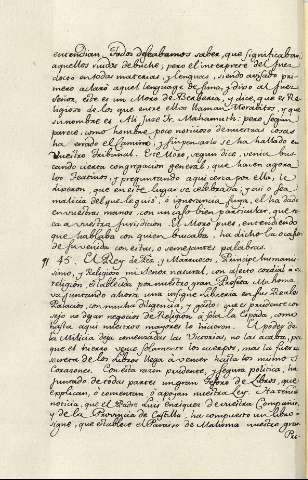 entendian, Todos deseabamos saber, que significaban
aquellos ruidos debuche; pero el interprete del Juez
docto en todas materias, y lenguas, siendo avisado pri-
mero aclaró aquel lenguage de sima, y dijo al Juez
Señor, este es un Moro de Berberia, y dice, que es Re-
ligioso de los que entre ellos llaman Morabitos, y que
su nombre es Ali José Jr. Mahamuth: pero segun
parece, como hombre poco noticioso de nuestras cosas
ha errado el Camino, y sin pensarlo se ha hallado en
Vuestro Tribunal. Este Moro, segun dice, venia bus-
cando cierta congregacion general, que hacen agora
los Teatinos, y preguntando aqui cerca por ella, le
dijeron, que en este lugar se celebraba; y asi ò sea
malicia del que le guió, ò ignorancia suya, el ha dado
en vuestras manos, con un caso bien particular, que to-
ca a vuestra Jurisdicion. El Moro pues, entendiendo
que hablaba con quien buscaba, ha dicho la ocasion
de su venida con estas, o semejantes palabras.
45. El Rey de Fez, y Marruecos, Principe humani-
simo, y Religioso mi Señor natural, con afecto cordial a la
religion establecida por nuestro gran Profeta Mahoma,
va juntando ahora una insigne Libreria en sus Reales
Palacios, con mucha diligencia, y gasto: que el prudente con-
sejo no dejar negocios de Religion, a sola la Espada, como
hasta aqui nuestros mayores lo hicieron. El poder de
la Milicia deja comenzadas las Victorias, no las acaba, por
que el hierro vence solamente los cuerpos, mas la fuerza
secreta de los Libros llega á vencer hasta los mismos
Corazones. Con esta razon prudente, y segura politica, ha
juntado de todas partes un gran Tesoro de Libros, que
explican, ò comentan, ò apoyan nuestra Ley. Ha tenido
noticia, que el Padre Luis Enriquez de vuestra Compañia,
y de la Provincia de Castilla, ha compuesto un libro in-
signe, que establece el Paraiso de Mahoma nuestro gran
Pro-